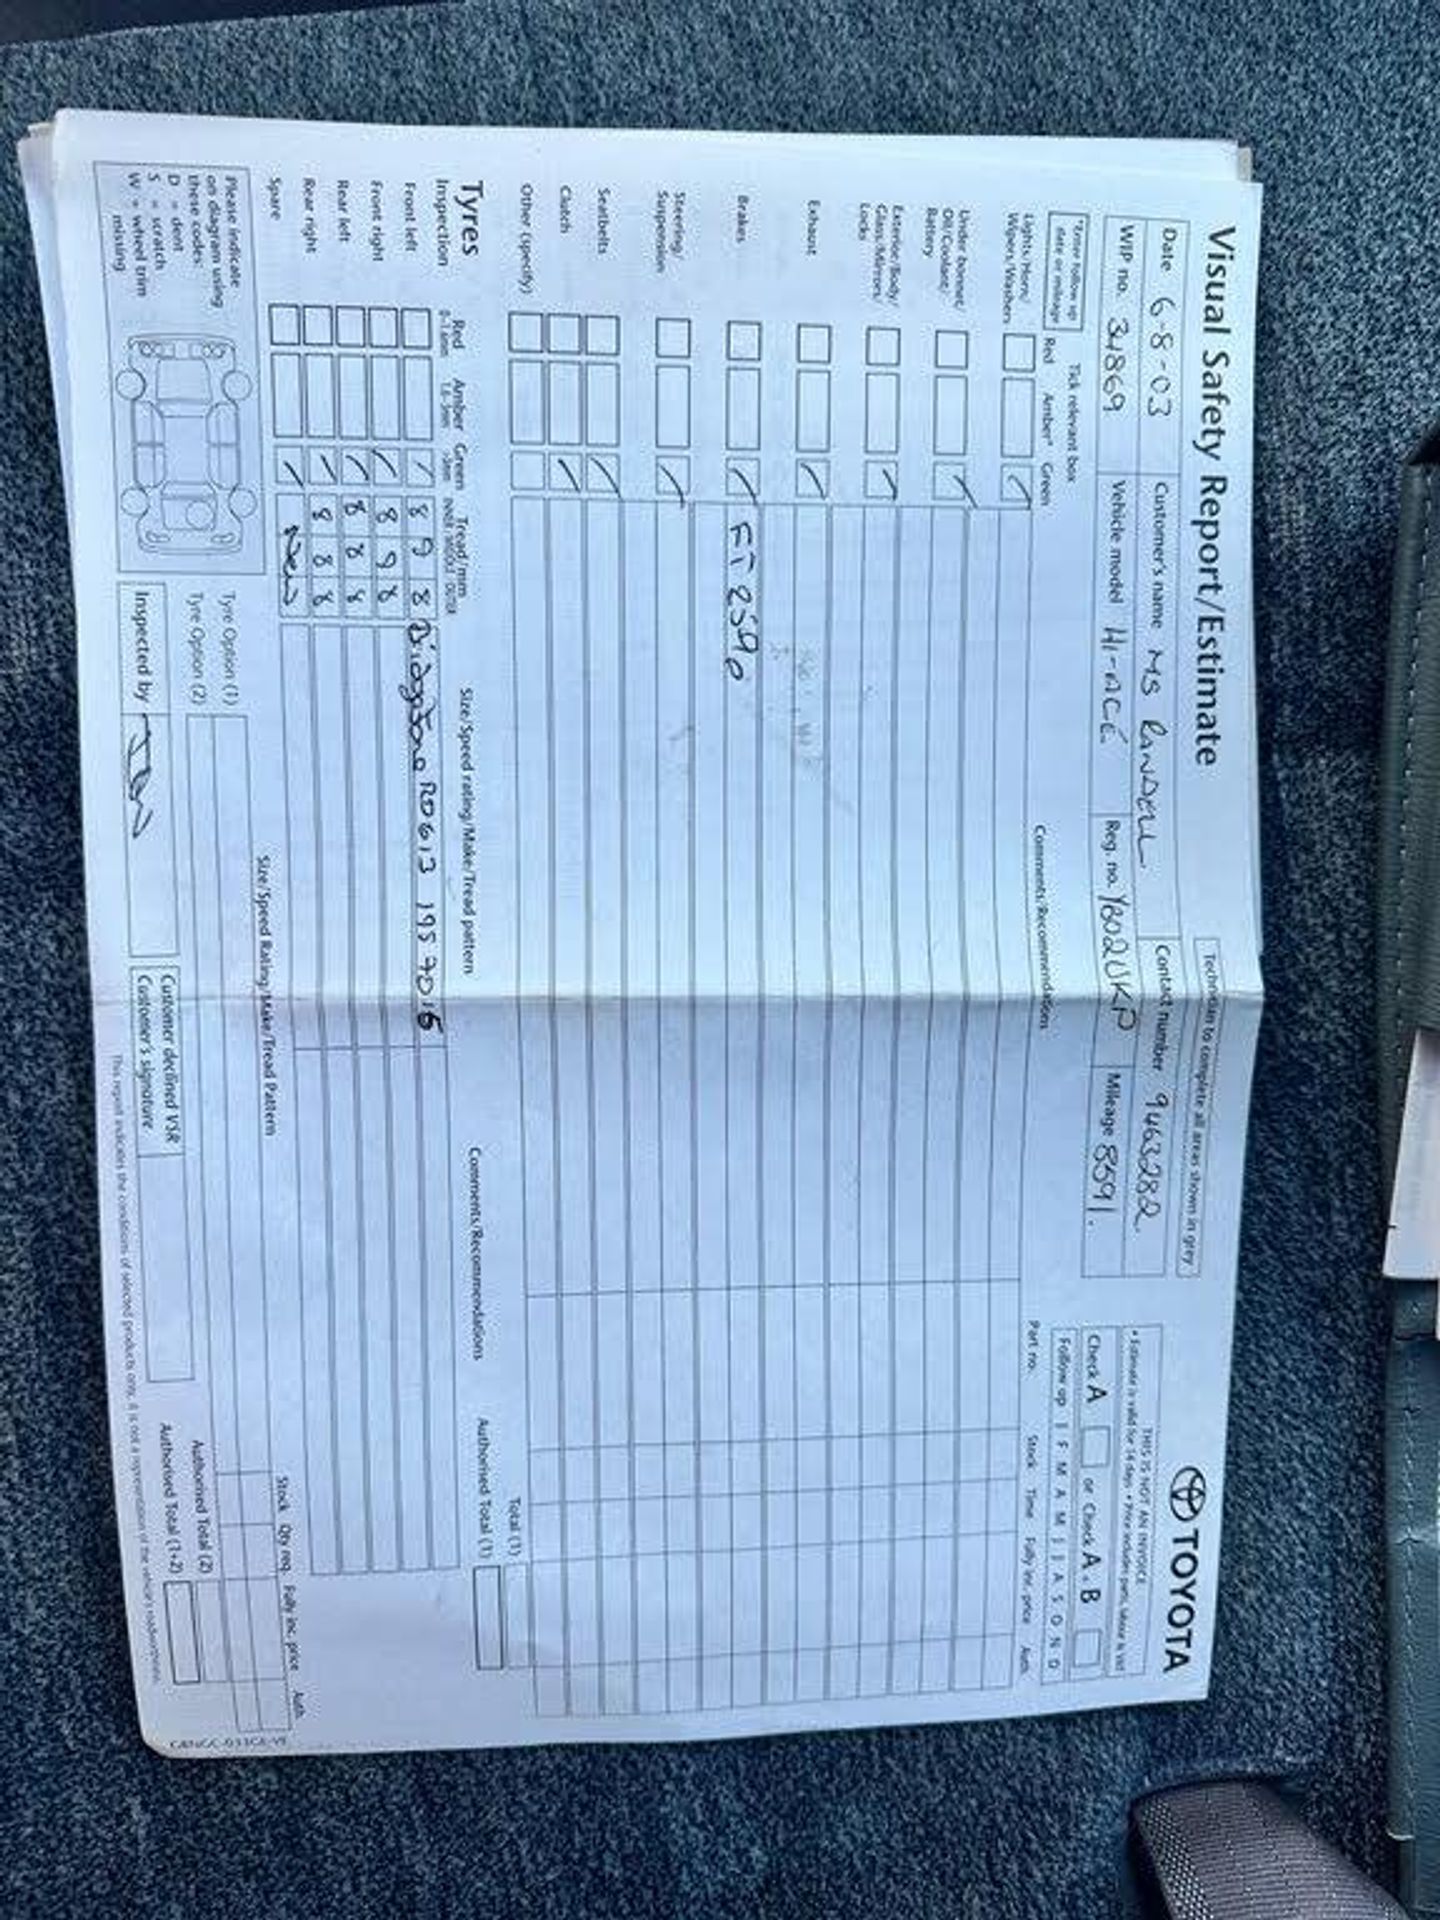 Visual Safety Report/Estimate
Technician to complete all areas shown in grey
TOYOTA
Date 6-8-03 Customer's name MS RANDELL. Contact number 9463282.
WIP no. 34869 Vehicle model HI-ACE Reg. no. YB02UKP Mileage 8591.
THIS IS NOT AN INVOICE
• Estimate is valid for 14 days • Price includes parts, labour & VAT
Check A or Check A + B
Follow up J F M A M J J A S O N D
*Enter follow up
date or mileage
Tick relevant box
Red Amber* Green Comments/Recommendations Part no. Stock Time Fully inc. price Auth.
Lights/Horn/
Wipers/Washers
Under bonnet/
Oil/Coolant/
Battery
Exterior/Body/
Glass/Mirrors/
Locks
Exhaust
Brakes FT 25%
Steering/
Suspension
Seatbelts
Clutch
Other (specify)
Total (1)
Authorised Total (1)
Tyres
Inspection Red Amber Green Tread/mm Size/Speed rating/Make/Tread pattern Comments/Recommendations
0-1.6mm 1.6-3mm INNER MIDDLE OUTER
Front left 8 9 8 R0613 195 70 15
Front right 8 9 8
Rear left 8 8 8
Rear right 8 8 8
Spare New
Size/Speed Rating/Make/Tread Pattern Stock Qty req Fully inc. price Auth.
Tyre Option (1)
Tyre Option (2)
Authorised Total (2)
Authorised Total (1+2)
Please indicate
on diagram using
these codes:
D = dent
S = scratch
W = wheel trim
missing
Inspected by
Customer declined VSR
Customer's signature
This report indicates the conditions of selected products only, it is not a representation of the vehicle's roadworthiness.